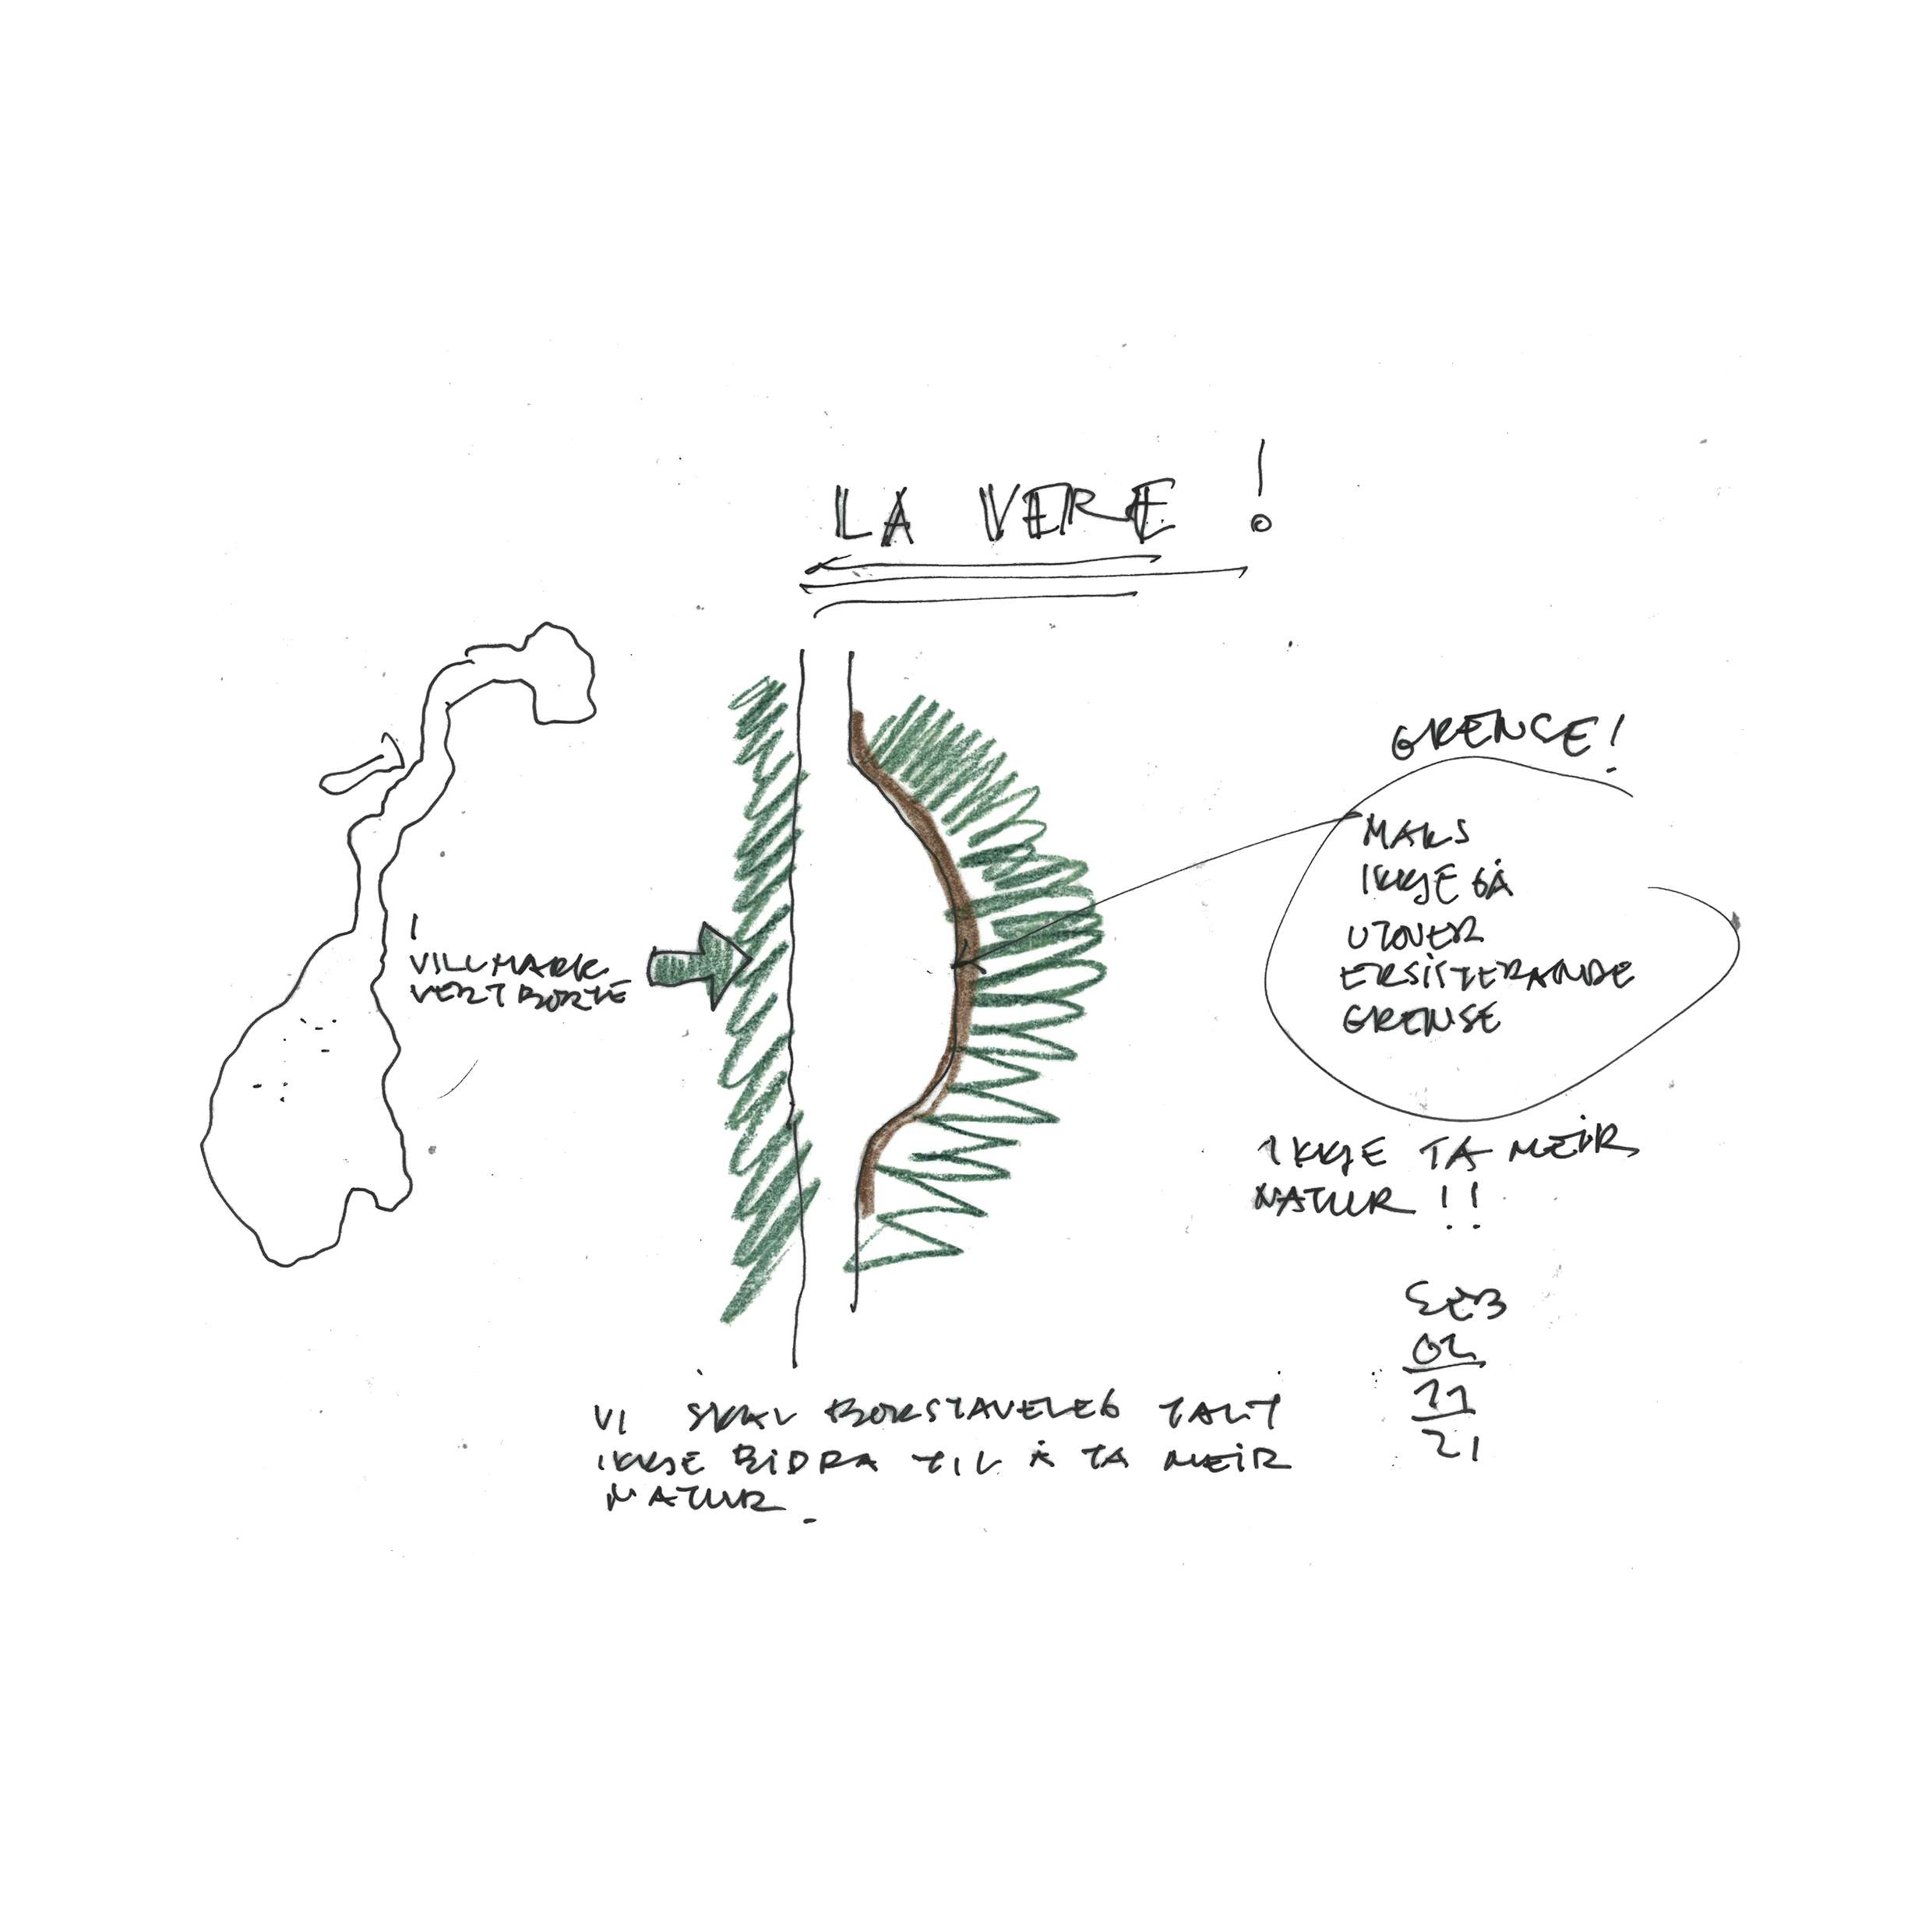 LA VERE !
GRENSE!
MAKS
IKKJE GÅ
UTOVER
EKSISTERANDE
GRENSE
VILLMARK
VERT BORTE
IKKJE TA MEIR
NATUR !!
02
11
21
VI SKAL BOKSTAVELEG TALT
IKKJE BIDRA TIL Å TA MEIR
NATUR.